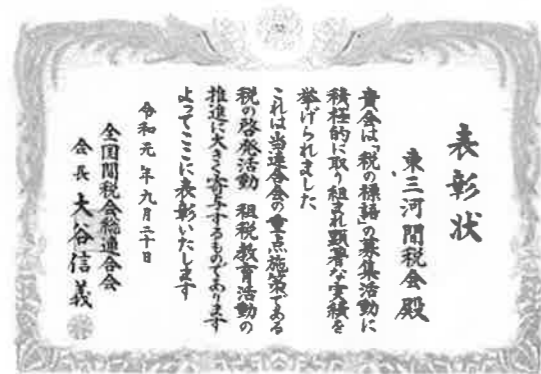 表彰状
東三河間税会殿
貴会は「税の標語」の募集活動に
積極的に取り組まれ顕著な実績を
挙げられました
これは当連合会の重点施策である
税の啓発活動 租税教育活動の
推進に大きく寄与するものであります
よってここに表彰いたします
令和元年九月二十日
全国間税会総連合会
会長 大谷信義